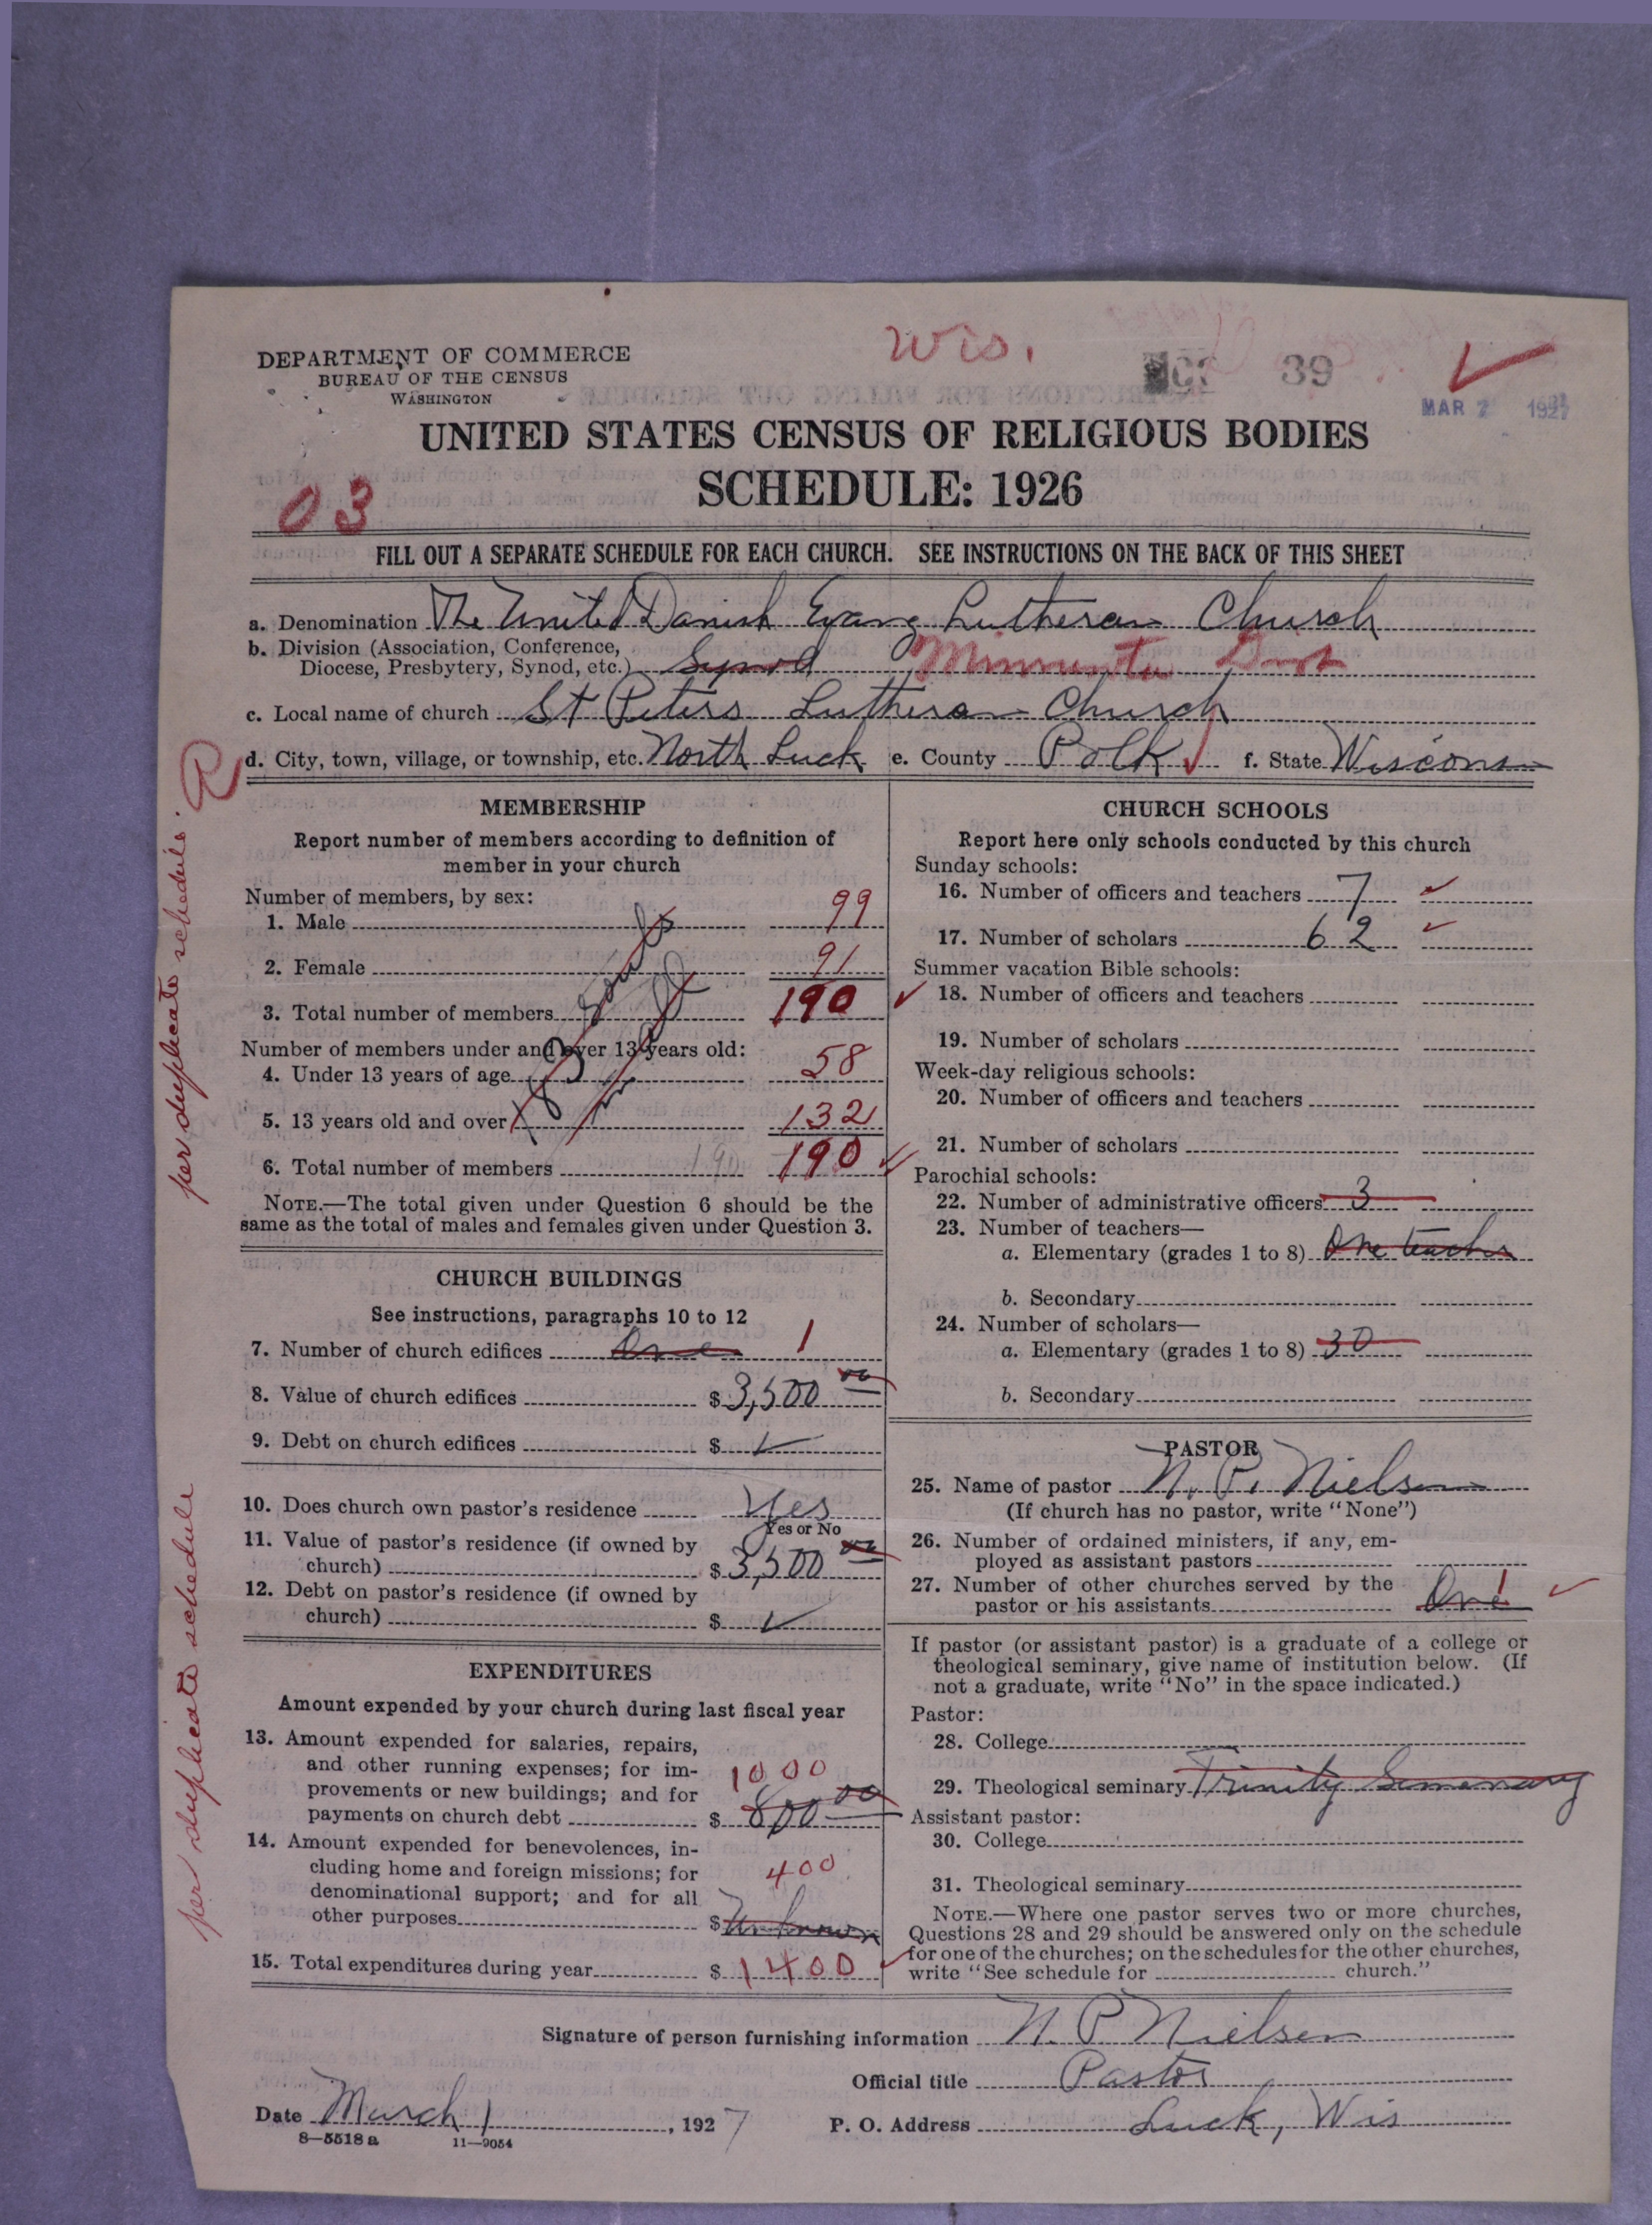 Wis.
DEPARTMENT OF COMMERCE
BUREAU OF THE CENSUS
WASHINGTON
39
MAR 2 1927
UNITED STATES CENSUS OF RELIGIOUS BODIES
SCHEDULE: 1926
03
FILL OUT A SEPARATE SCHEDULE FOR EACH CHURCH. SEE INSTRUCTIONS ON THE BACK OF THIS SHEET
a. Denomination The United Danish Evang Lutheran Church
b. Division (Association, Conference,
Diocese, Presbytery, Synod, etc.) Synod Minnesota Dist
c. Local name of church St Peters Lutheran Church
d. City, town, village, or township, etc. North Luck e. County Polk f. State Wisconsin
R
per duplicate schedule.
MEMBERSHIP
Report number of members according to definition of
member in your church
Number of members, by sex:
1. Male 99
2. Female 91
3. Total number of members 190
Number of members under and over 13 years old:
4. Under 13 years of age 58
5. 13 years old and over 132
6. Total number of members 190 190
NOTE.—The total given under Question 6 should be the
same as the total of males and females given under Question 3.
CHURCH BUILDINGS
See instructions, paragraphs 10 to 12
7. Number of church edifices One 1
8. Value of church edifices $ 3,500 00
9. Debt on church edifices $
10. Does church own pastor's residence Yes
Yes or No
11. Value of pastor's residence (if owned by
church) $ 3,500 00
12. Debt on pastor's residence (if owned by
church) $
per duplicate schedule
EXPENDITURES
Amount expended by your church during last fiscal year
13. Amount expended for salaries, repairs,
and other running expenses; for im-
provements or new buildings; and for 1000
payments on church debt $ 800 00
14. Amount expended for benevolences, in-
cluding home and foreign missions; for 400
denominational support; and for all
other purposes $ Unknown
15. Total expenditures during year $ 1400
CHURCH SCHOOLS
Report here only schools conducted by this church
Sunday schools:
16. Number of officers and teachers 7
17. Number of scholars 62
Summer vacation Bible schools:
18. Number of officers and teachers
19. Number of scholars
Week-day religious schools:
20. Number of officers and teachers
21. Number of scholars
Parochial schools:
22. Number of administrative officers 3
23. Number of teachers—
a. Elementary (grades 1 to 8) One teacher
b. Secondary
24. Number of scholars—
a. Elementary (grades 1 to 8) 30
b. Secondary
PASTOR
25. Name of pastor N. P. Nielsen
(If church has no pastor, write "None")
26. Number of ordained ministers, if any, em-
ployed as assistant pastors
27. Number of other churches served by the
pastor or his assistants One 1
If pastor (or assistant pastor) is a graduate of a college or
theological seminary, give name of institution below. (If
not a graduate, write "No" in the space indicated.)
Pastor:
28. College
29. Theological seminary Trinity Semenary
Assistant pastor:
30. College
31. Theological seminary
NOTE.—Where one pastor serves two or more churches,
Questions 28 and 29 should be answered only on the schedule
for one of the churches; on the schedules for the other churches,
write "See schedule for church."
Signature of person furnishing information N. P. Nielsen
Official title Pastor
Date March 1, 1927 P. O. Address Luck, Wis
8—5518a 11—9054